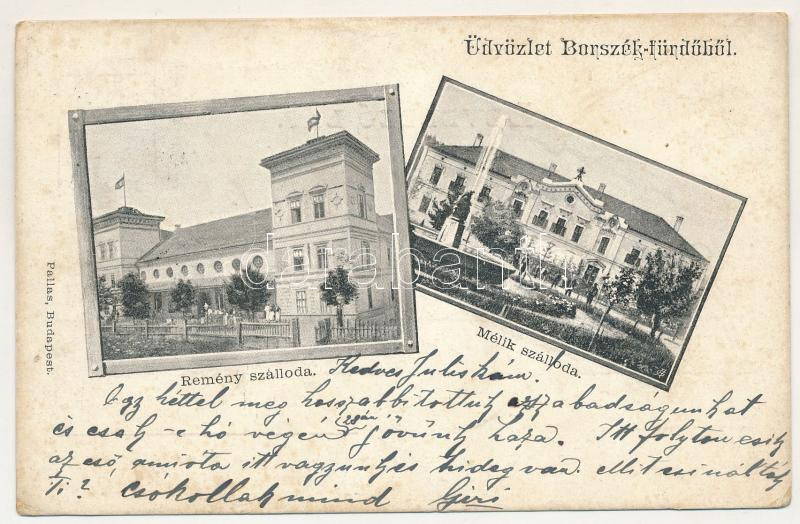 Üdvözlet Borszék-fürdőből.
Pallas, Budapest.
Remény szálloda.
Mélik szálloda.
darabanth
Kedves Juliskám.
Egy héttel meg hosszabbitottuk szabadságunkat
és csak e hó végén (28án) jövünk haza. Itt folyton esik
az eső, amióta itt vagyunk, és hideg van. Mit csináltok
Ti? Csókollak mind Géri